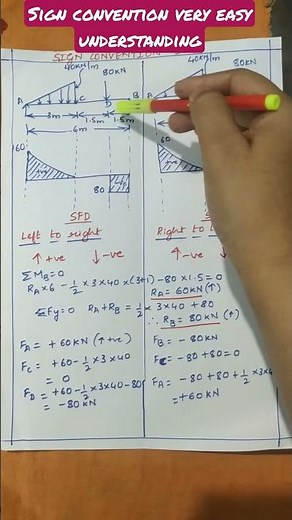 Sign convention very easy
understanding
SIGN CONVENTION
40kN/m
80KN
A
C
D
B
3m
1.5m
1.5m
6m
60
80
SFD
Left to right
↑ +ve ↓ -ve
ΣM_B=0
R_A×6 - 1/2 ×3×40×(3+1) - 80×1.5=0
R_A = 60KN(↑)
ΣFy=0 R_A+R_B = 1/2 × 3×40 +80
∴ R_B = 80KN (↑)
F_A = +60KN (↑+ve)
F_C = +60 - 1/2 ×3×40
= 0
F_D = +60 - 1/2 ×3×40 -80
= -80 KN
40KN/m
80KN
A
60
Right to
↑ -ve ↓
F_B = -80KN
F_C = -80+80=0
F_A = -80+80+1/2×3×4
= +60 KN